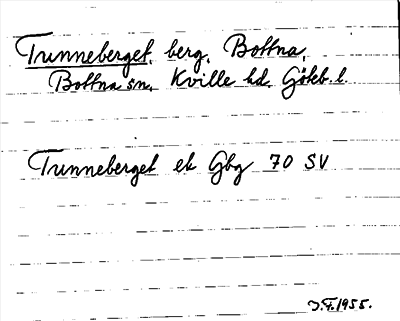 Trinneberget, berg, Bottna,
Bottna sn, Kville hd. Göteb. l.
Trinneberget ek Gbg 70 SV
J.F. 1955.